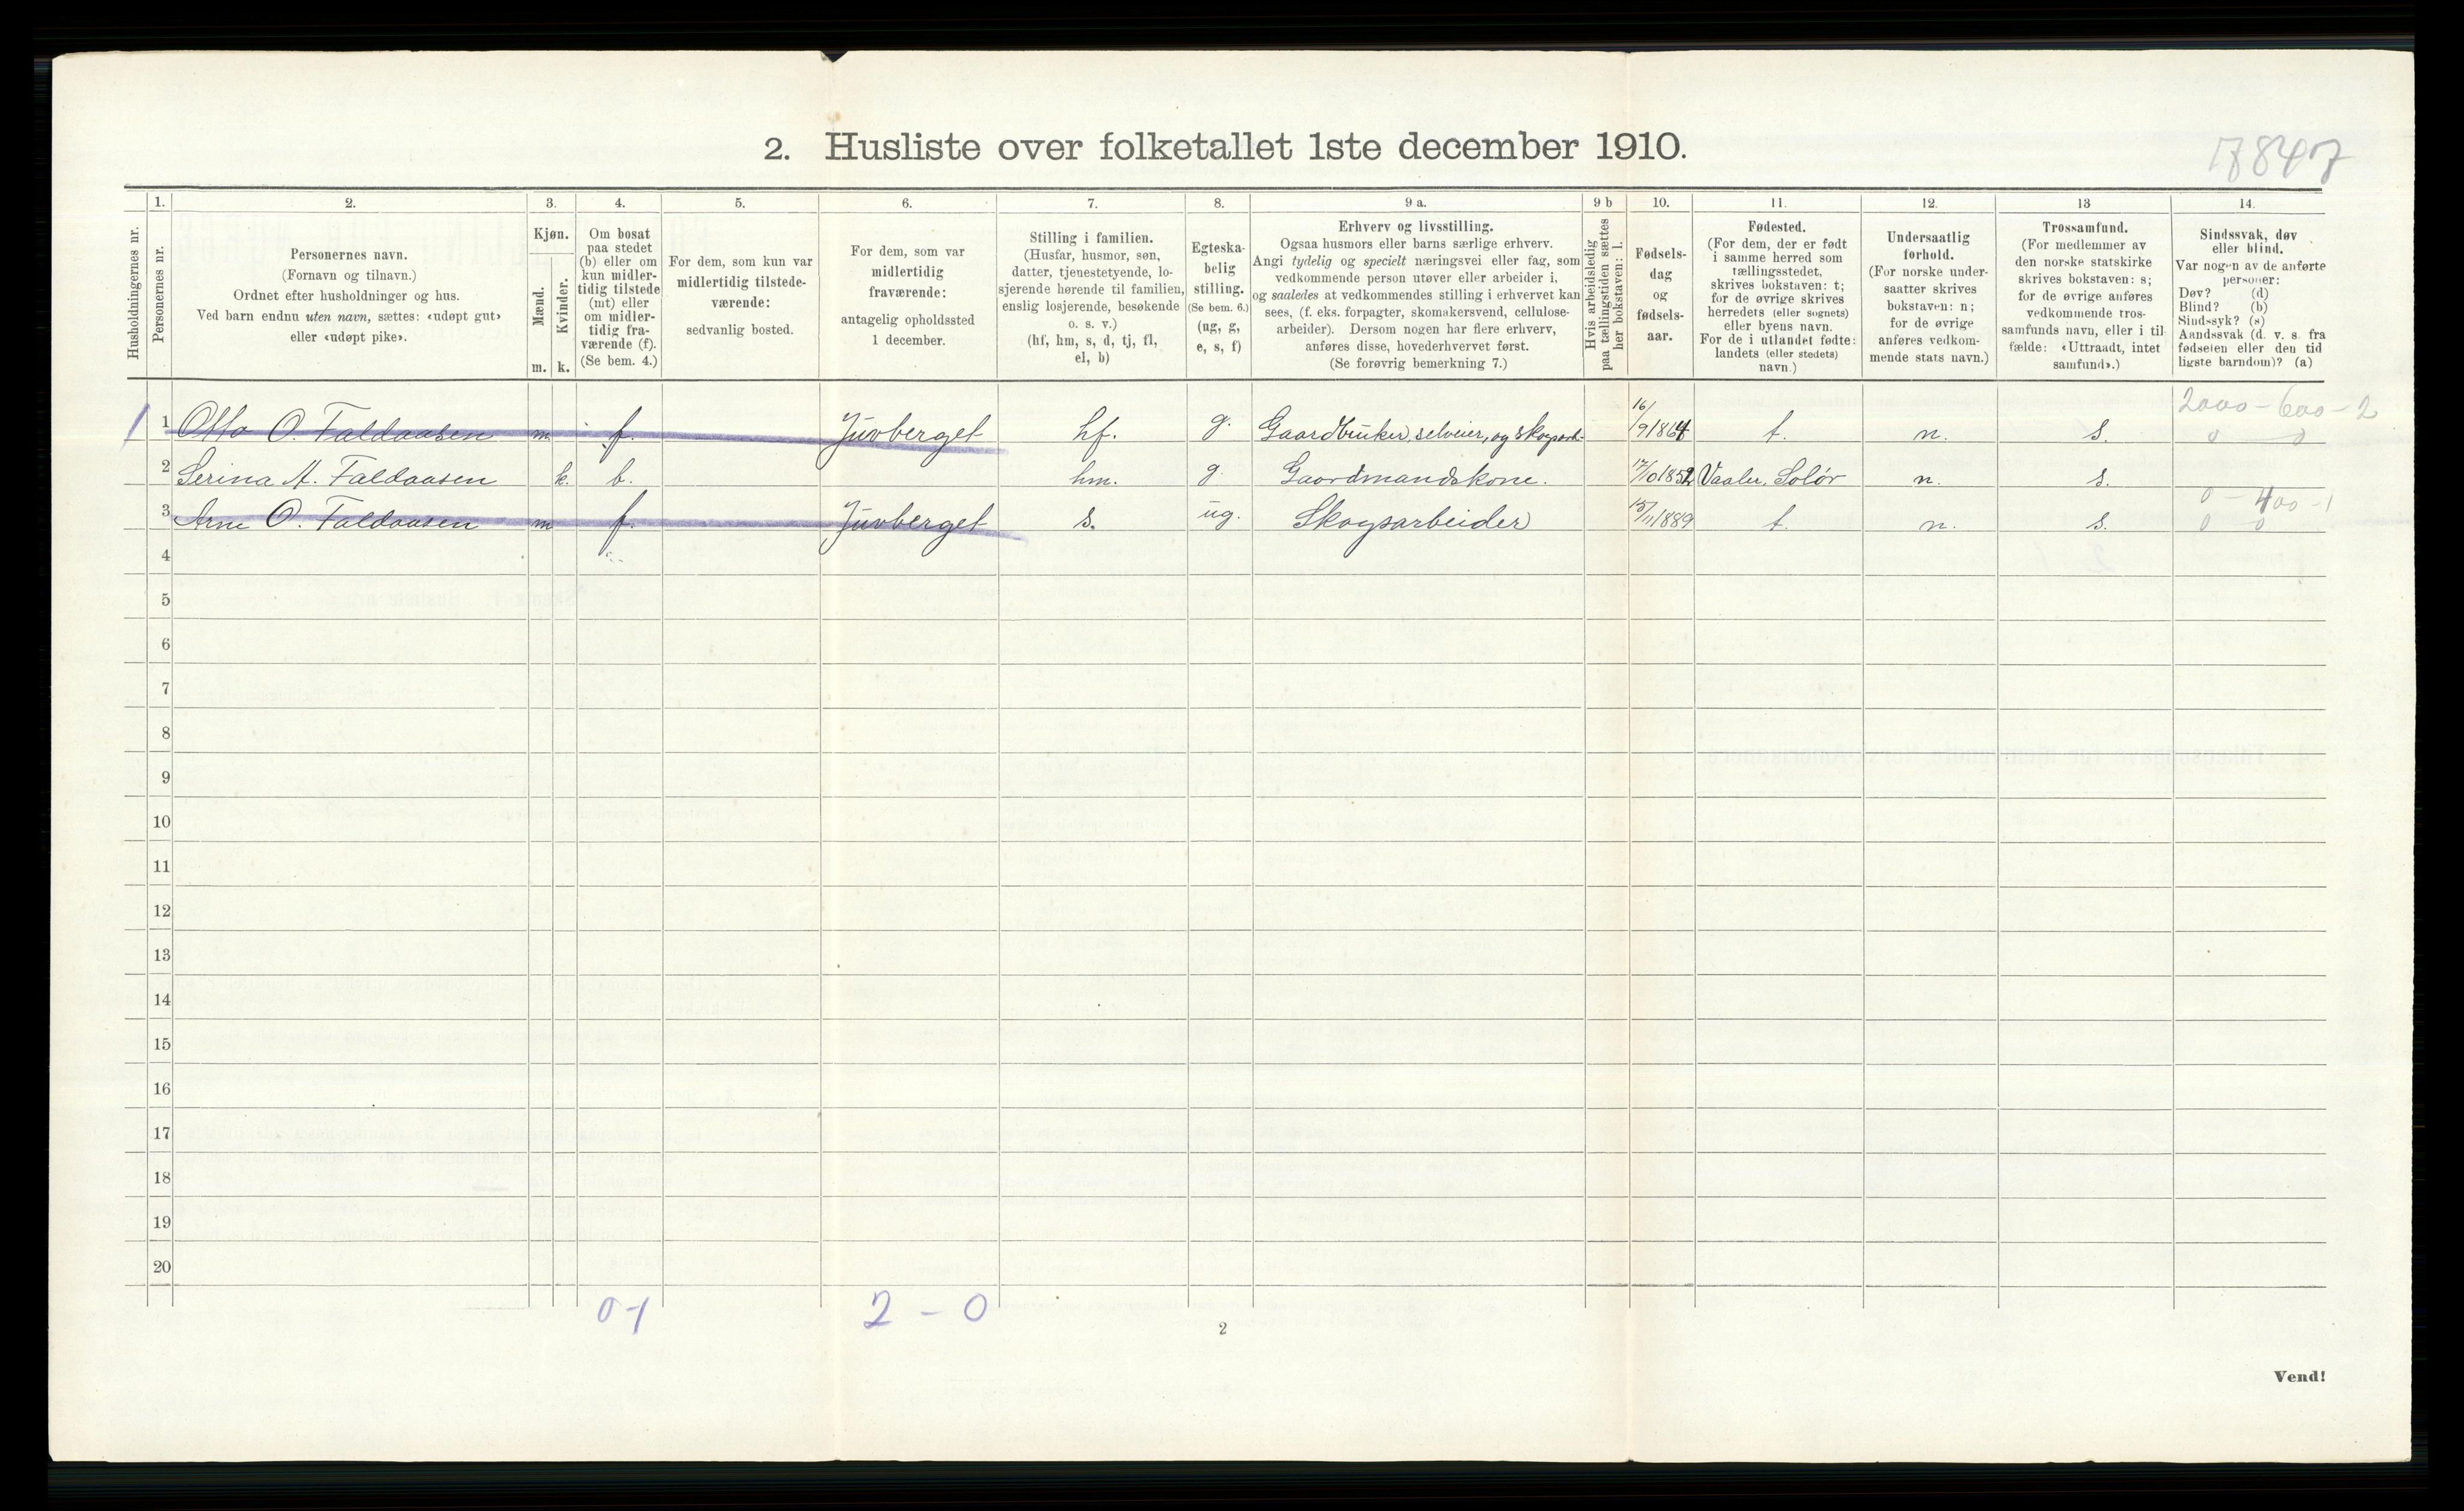 2. Husliste over folketallet 1ste december 1910.
17847
Husholdningernes nr.
1.
Personernes nr.
2.
Personernes navn.
(Fornavn og tilnavn.)
Ordnet efter husholdninger og hus.
Ved barn endnu uten navn, sættes: «udøpt gut»
eller «udøpt pike».
3.
Kjøn.
Mænd.
Kvinder.
m. k.
4.
Om bosat
paa stedet
(b) eller om
kun midler-
tidig tilstede
(mt) eller
om midler-
tidig fra-
værende (f).
(Se bem. 4.)
5.
For dem, som kun var
midlertidig tilstede-
værende:
sedvanlig bosted.
6.
For dem, som var
midlertidig
fraværende:
antagelig opholdssted
1 december.
7.
Stilling i familien.
(Husfar, husmor, søn,
datter, tjenestetyende, lo-
sjerende hørende til familien,
enslig losjerende, besøkende
o. s. v.)
(hf, hm, s, d, tj, fl,
el, b)
8.
Egteska-
belig
stilling.
(Se bem. 6.)
(ug, g,
e, s, f)
9 a.
Erhverv og livsstilling.
Ogsaa husmors eller barns særlige erhverv.
Angi tydelig og specielt næringsvei eller fag, som
vedkommende person utøver eller arbeider i,
og saaledes at vedkommendes stilling i erhvervet kan
sees, (f. eks. forpagter, skomakersvend, cellulose-
arbeider). Dersom nogen har flere erhverv,
anføres disse, hovederhvervet først.
(Se forøvrig bemerkning 7.)
9 b
Hvis arbeidsledig
paa tællingstiden sættes
her bokstaven: l.
10.
Fødsels-
dag
og
fødsels-
aar.
11.
Fødested.
(For dem, der er født
i samme herred som
tællingsstedet,
skrives bokstaven: t;
for de øvrige skrives
herredets (eller sognets)
eller byens navn.
For de i utlandet fødte:
landets (eller stedets)
navn.)
12.
Undersaatlig
forhold.
(For norske under-
saatter skrives
bokstaven: n;
for de øvrige
anføres vedkom-
mende stats navn.)
13
Trossamfund.
(For medlemmer av
den norske statskirke
skrives bokstaven: s;
for de øvrige anføres
vedkommende tros-
samfunds navn, eller i til
fælde: «Uttraadt, intet
samfund».)
14.
Sindssvak, døv
eller blind.
Var nogen av de anførte
personer:
Døv? (d)
Blind? (b)
Sindssyk? (s)
Aandssvak (d. v. s. fra
fødselen eller den tid
ligste barndom)? (a)
2000 - 600 - 2
1 1 Otto O. Faldaasen m. f. Juvberget hf. g. Gaardbruker, selveier, og skogsarb. 16/9 1864 t. n. s. 0 0
2 Serina A. Faldaasen k. b. hm. g. Gaardmandskone. 17/10 1852 Vaaler, Solør n. s.
0 - 400 - 1
3 Arne O. Faldaasen m f. Juvberget s. ug. Skogsarbeider 15/11 1889 t. n. s. 0 0
4
5
6
7
8
9
10
11
12
13
14
15
16
17
18
19
20
0-1 2 - 0
2
Vend!